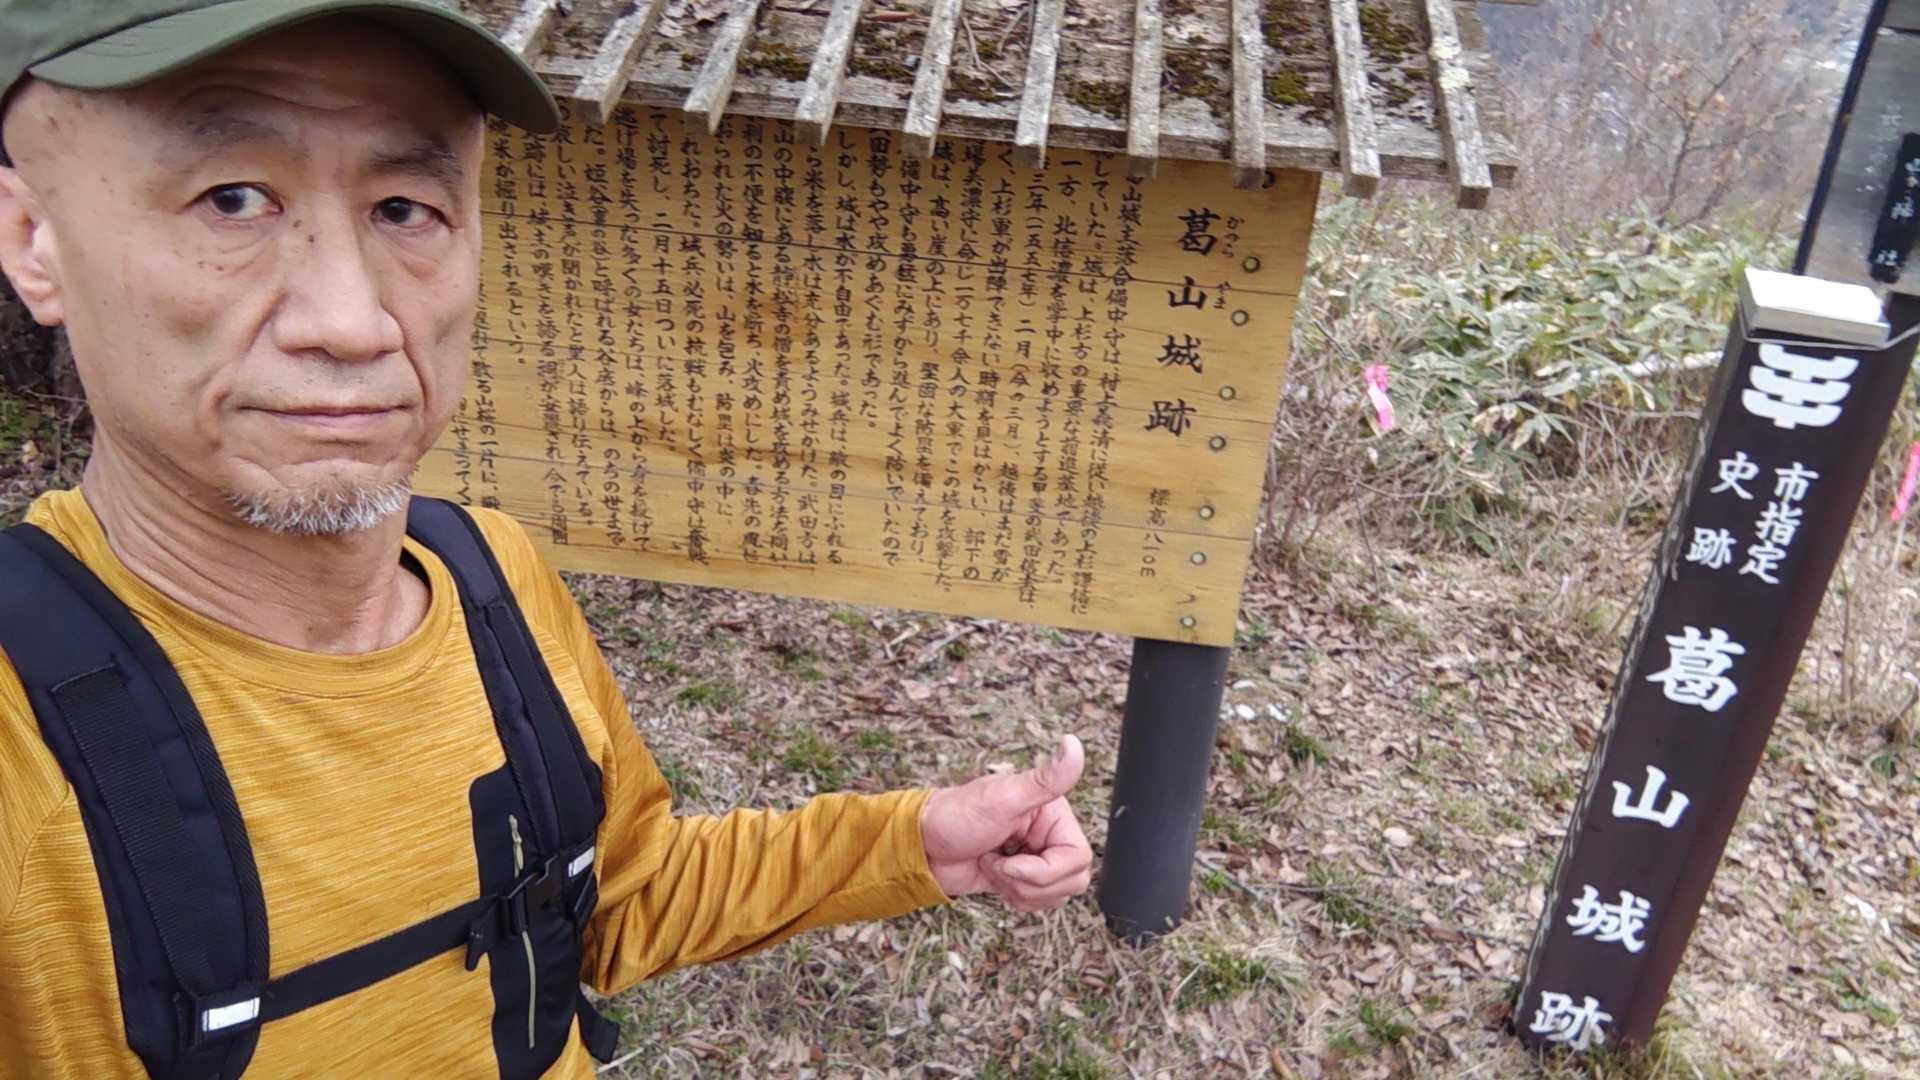 葛山城跡
かつら やま
標高八一〇m
山城主落合備中守は、村上義清に従い越後の上杉謙信に
していた。城は、上杉方の重要な前進基地であった。
一方、北信濃を掌中に収めようとする甲斐の武田信玄は、
三年(一五五七年)二月(今の三月)、越後はまだ雪が
く、上杉軍が出陣できない時期を見はからい、部下の
場美濃守に命じ一万七千余人の大軍でこの城を攻撃した。
城は、高い崖の上にあり、堅固な防塁を備えており、
備中守も勇猛にみずから進んでよく防いでいたので
田勢もやや攻めあぐむ形であった。
しかし、城は水が不自由であった。城兵は敵の目にふれる
ら米を落し水は充分あるようみせかけた。武田方は
山の中腹にある静松寺の僧を責め城を攻める方法を問い
利の不便を知ると水を断ち、火攻めにした。春先の風に
おられた火の勢いは、山を包み、防塁は炎の中に、
れおちた。城兵必死の抗戦もむなしく備中守は奮戦
て討死し、二月十五日ついに落城した。
逃げ場を失った多くの女たちは、峰の上から身を投げて
た。姫谷
の谷と呼ばれる谷底からは、のちの世まで
哀しい泣き声が聞かれたと里人は語り伝えている。
跡には、城主の嘆きを語る祠が安置され、今でも周囲
米が掘り出されるという。
て散る山桜の一片に、
市指定
史跡
葛山城跡